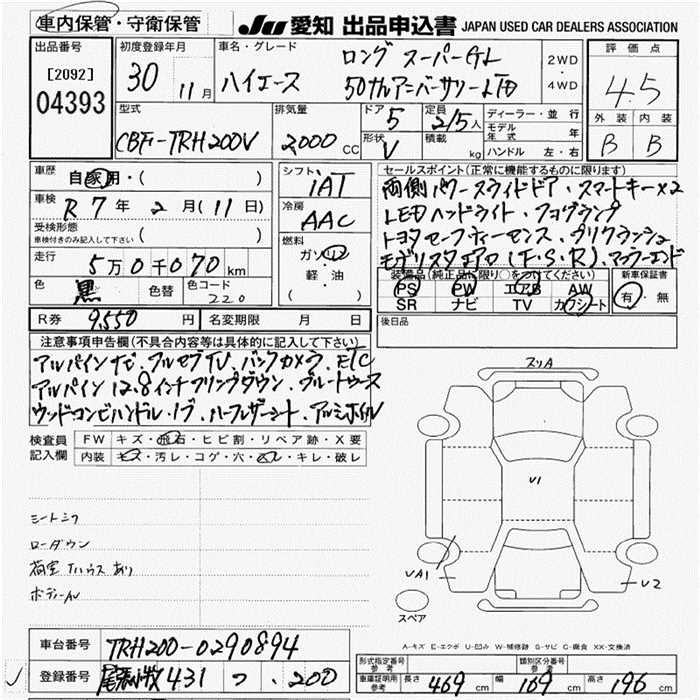 車内保管・守衛保管
JU 愛知 出品申込書 JAPAN USED CAR DEALERS ASSOCIATION
出品番号
[2092]
04393
初度登録年月
30 11月
車名・グレード
ロング スーパーGL
ハイエース 50thアニバーサリーLTD
2WD
・
4WD
評価点
4.5
外装 内装
B B
型式
CBF-TRH200V
排気量
2000CC
ドア 5
形状 V
定員 2/5人
積載 kg
ディーラー・並行
モデル年式 年
ハンドル 左・右
車歴 自家用・( )
車検 R7年2月(11日)
受検形態
車検付きのみ記入して下さい ( )
走行 5万0千070km
色 黒 色替 色コード 220
シフト
IAT
冷房
AAC
燃料
ガソリン
軽・油
( )
セールスポイント(正常に機能するものに限ります)
両側パワースライドドア・スマートキー×2
LEDヘッドライト・フォグランプ
トヨタセーフティーセンス・プリクラッシュ
モデリスタエアロ(F.S.R)・マフラーエンド
装備品(純正品に限り○をつけてください)
PS PW エアB AW
SR ナビ TV カワシート
新車保証書
有・無
R券 9,550円 名変期限 月 日
後日品
注意事項申告欄(不具合内容等は具体的に記入して下さい)
アルパインナビ・フルセグTV・バックカメラ・ETC
アルパイン12.8インチフリップダウン・ブルートゥース
ウッドコンビハンドル・ノブ・ハーフレザーシート・アルミホイル
検査員記入欄
FW キズ・飛石・ヒビ割・リペア跡・X要
内装 キズ・汚レ・コゲ・穴・凹レ・キレ・破レ
シートシワ
ローダウン
荷室Tハウスあり
ボディーAV
スリA
V1
UA1
U2
スペア
A-キズ E-エクボ U-凹み W-補修跡 S-サビ C-腐食 XX-交換済
車台番号 TRH200-0290894
登録番号 尾張小牧 431 つ ・200
形式指定番号参考 類別区分番号参考
車庫証明用参考 長さ 469cm 幅 169cm 高さ 196cm